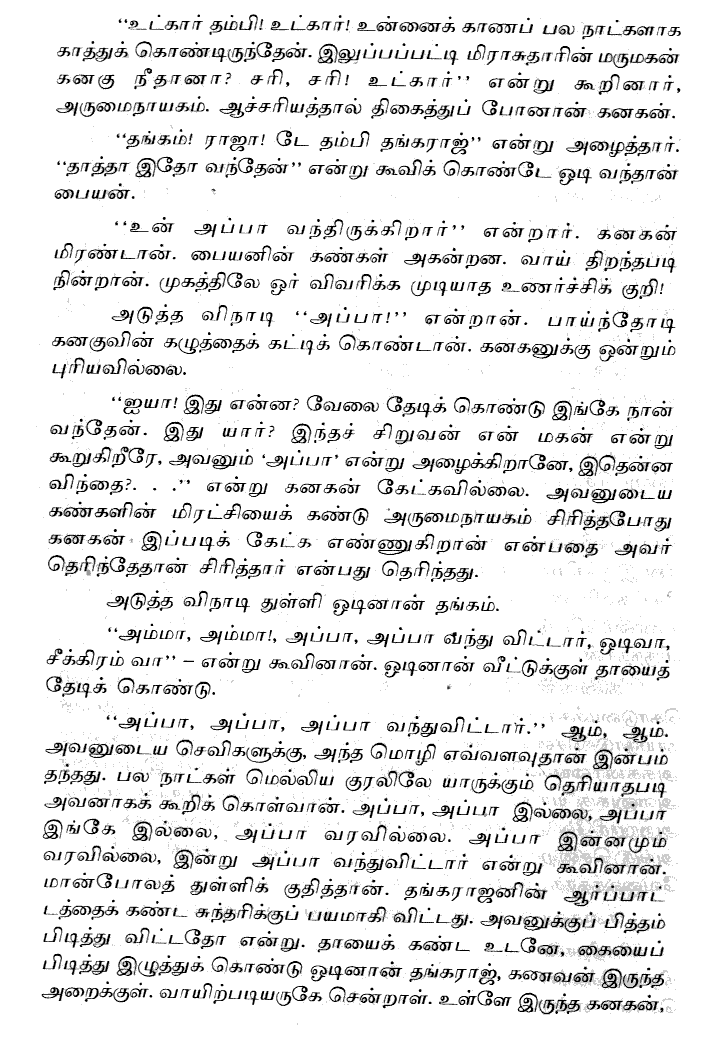 ‘‘உட்கார் தம்பி! உட்கார்! உன்னைக் காணப் பல நாட்களாக
காத்துக் கொண்டிருந்தேன். இலுப்பப்பட்டி மிராசுதாரின் மருமகன்
கனகு நீதானா? சரி, சரி! உட்கார்’’ என்று கூறினார்,
அருமைநாயகம். ஆச்சரியத்தால் திகைத்துப் போனான் கனகன்.
‘‘தங்கம்! ராஜா! டே தம்பி தங்கராஜ்’’ என்று அழைத்தார்.
‘‘தாத்தா இதோ வந்தேன்’’ என்று கூவிக் கொண்டே ஓடி வந்தான்
பையன்.
‘‘உன் அப்பா வந்திருக்கிறார்’’ என்றார். கனகன்
மிரண்டான். பையனின் கண்கள் அகன்றன. வாய் திறந்தபடி
நின்றான். முகத்திலே ஓர் விவரிக்க முடியாத உணர்ச்சிக் குறி!
அடுத்த விநாடி ‘‘அப்பா!’’ என்றான். பாய்ந்தோடி
கனகுவின் கழுத்தைக் கட்டிக் கொண்டான். கனகனுக்கு ஒன்றும்
புரியவில்லை.
‘‘ஐயா! இது என்ன? வேலை தேடிக் கொண்டு இங்கே நான்
வந்தேன். இது யார்? இந்தச் சிறுவன் என் மகன் என்று
கூறுகிறீரே, அவனும் ‘அப்பா’ என்று அழைக்கிறானே, இதென்ன
விந்தை?. . .’’ என்று கனகன் கேட்கவில்லை. அவனுடைய
கண்களின் மிரட்சியைக் கண்டு அருமைநாயகம் சிரித்தபோது
கனகன் இப்படிக் கேட்க எண்ணுகிறான் என்பதை அவர்
தெரிந்தேதான் சிரித்தார் என்பது தெரிந்தது.
அடுத்த விநாடி துள்ளி ஓடினான் தங்கம்.
‘‘அம்மா, அம்மா!, அப்பா, அப்பா வந்து விட்டார், ஓடிவா,
சீக்கிரம் வா’’ – என்று கூவினான். ஓடினான் வீட்டுக்குள் தாயைத்
தேடிக் கொண்டு.
‘‘அப்பா, அப்பா, அப்பா வந்துவிட்டார்.’’ ஆம், ஆம்.
அவனுடைய செவிகளுக்கு, அந்த மொழி எவ்வளவுதான் இன்பம்
தந்தது. பல நாட்கள் மெல்லிய குரலிலே யாருக்கும் தெரியாதபடி
அவனாகக் கூறிக் கொள்வான். அப்பா, அப்பா இல்லை, அப்பா
இங்கே இல்லை, அப்பா வரவில்லை. அப்பா இன்னமும்
வரவில்லை, இன்று அப்பா வந்துவிட்டார் என்று கூவினான்.
மான்போலத் துள்ளிக் குதித்தான். தங்கராஜனின் ஆர்ப்பாட்
டத்தைக் கண்ட சுந்தரிக்குப் பயமாகி விட்டது. அவனுக்குப் பித்தம்
பிடித்து விட்டதோ என்று. தாயைக் கண்ட உடனே, கையைப்
பிடித்து இழுத்துக் கொண்டு ஓடினான் தங்கராஜ், கணவன் இருந்த
அறைக்குள். வாயிற்படியருகே சென்றாள். உள்ளே இருந்த கனகன்,